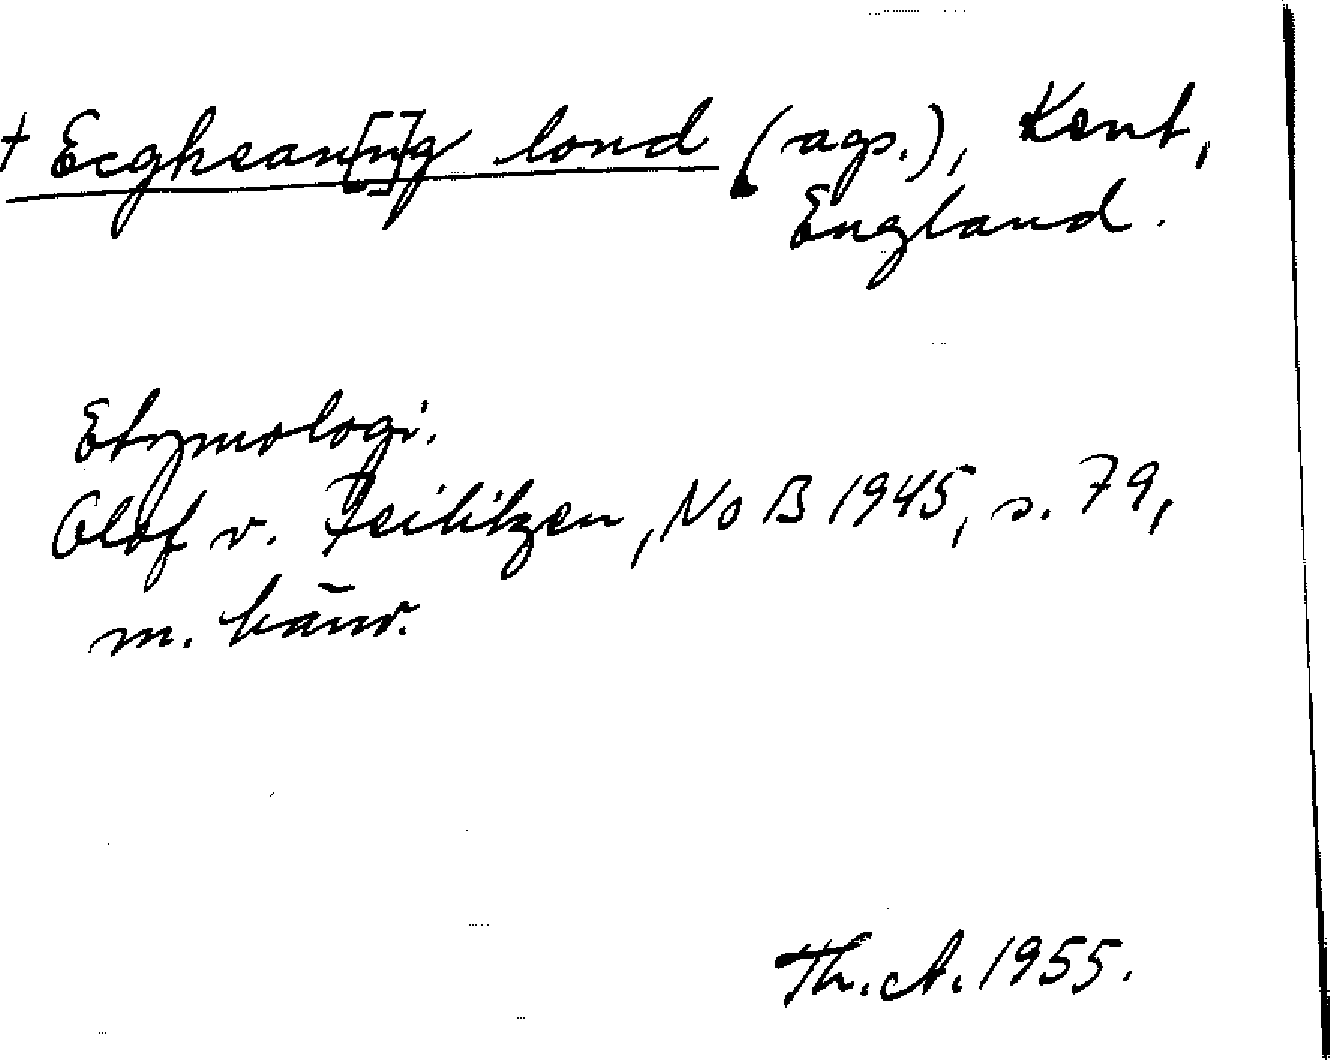 † Ecghean[n]g lond (ags.), Kent,
England.
Etymologi.
Olof v. Feilitzen, NoB 1945, s. 79,
m. hänv.
Th. A. 1955.